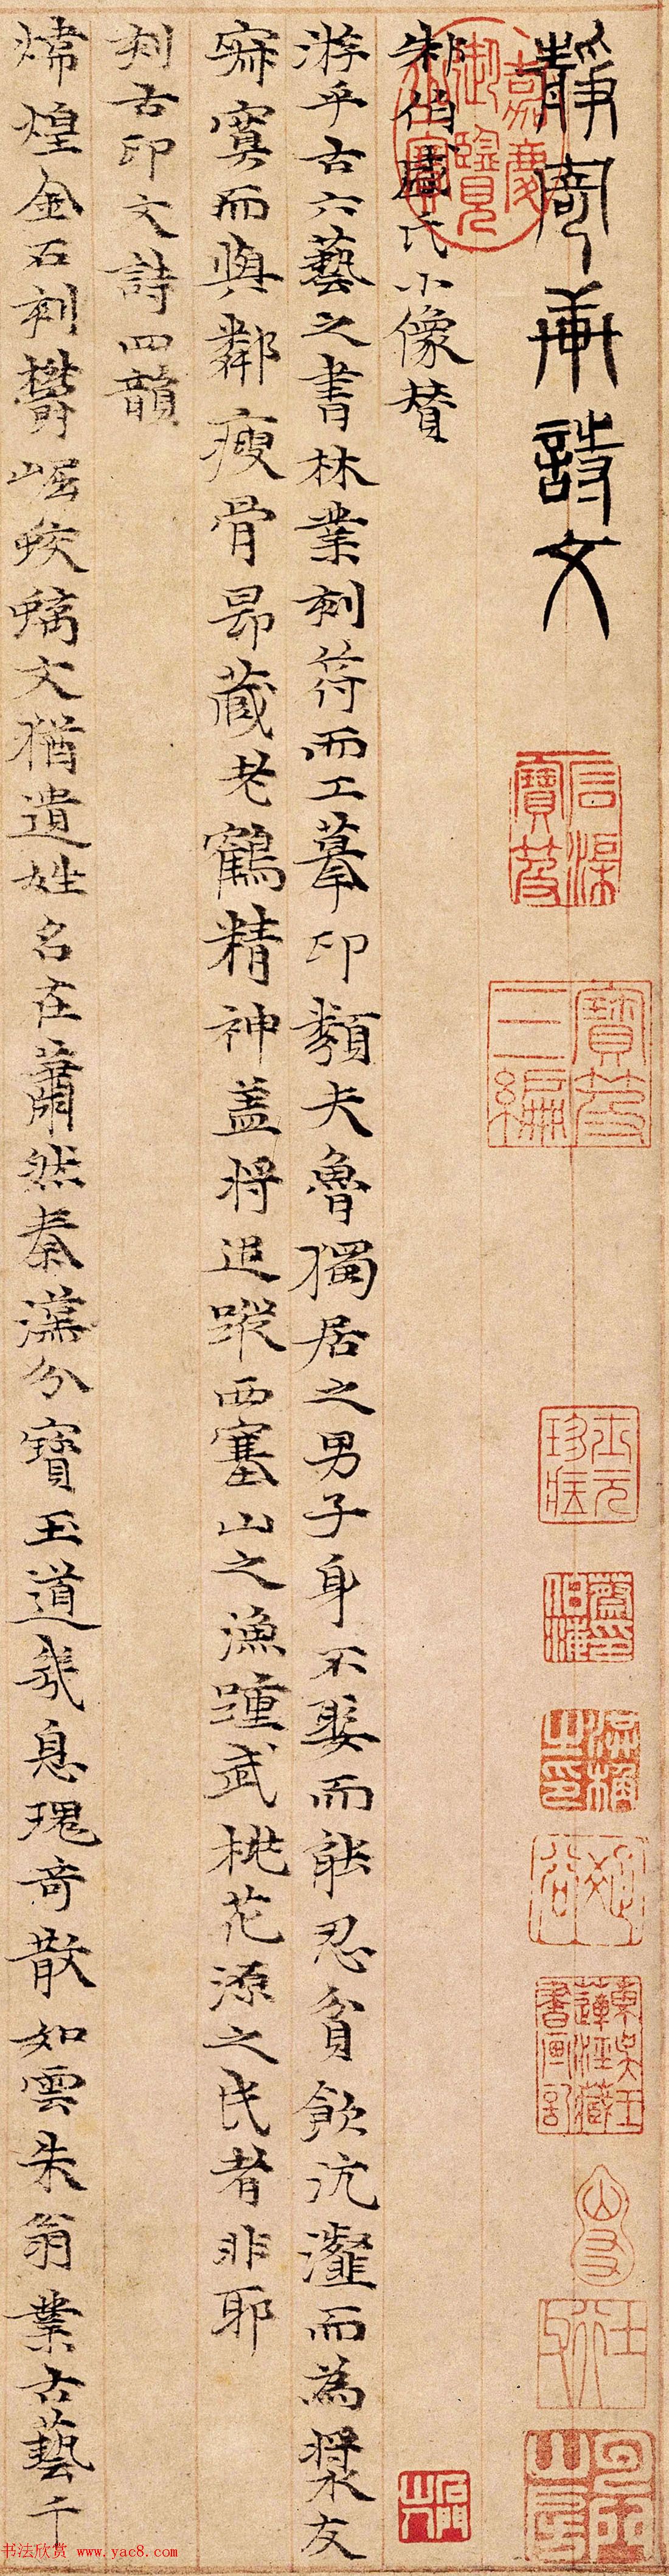 靜寄軒詩文
朱伯盛氏小像贊
游乎古六藝之書林業刻符而工摹印類夫魯獨居之男子身不娶而能忍貧飲沆瀣而為漿友
寂寞而與鄰瘦骨昂藏老鶴精神蓋將追蹤西塞山之漁踵武桃花源之民者非耶
刻古印文詩四韻
煒煌金石刻鬱崛蛟螭文猶遺姓名在蕭然秦漢分寶玉道幾息瑰奇散如雲朱翁業古藝千
嘉慶御覽之寶
寶笈三編
石門山人
书法欣赏 www.yac8.com